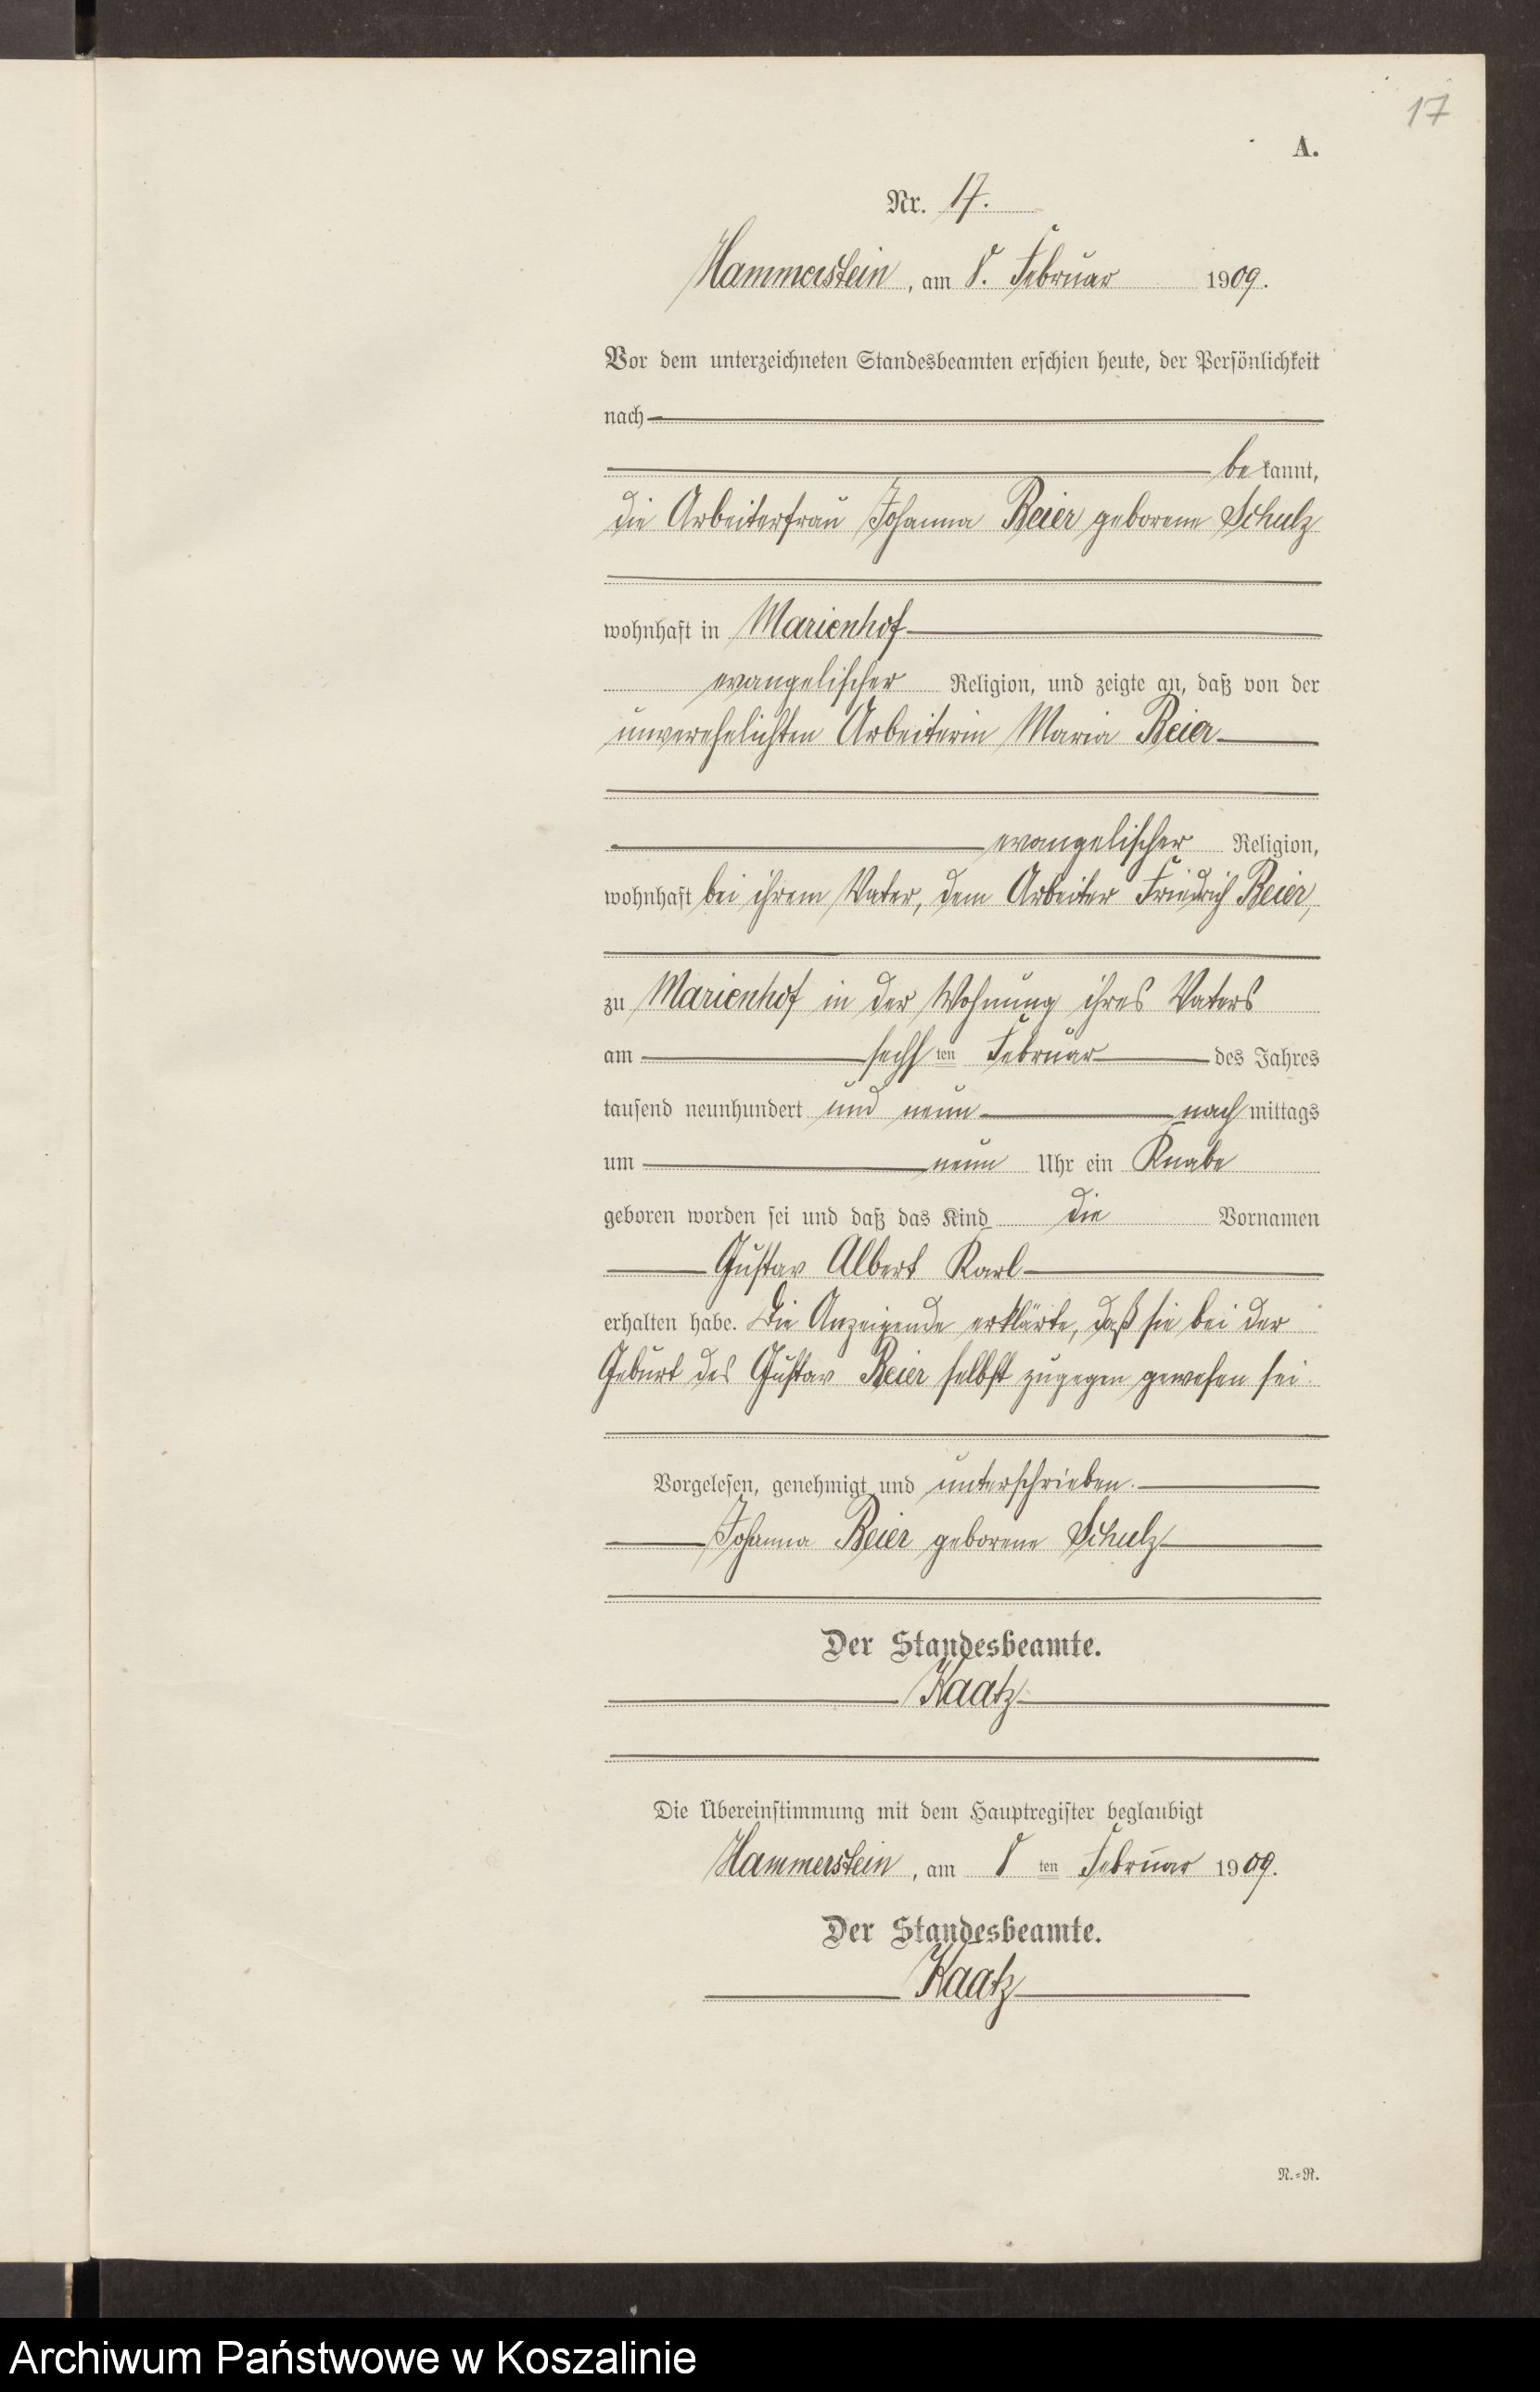 17
A.
Nr. 17.
Hammerstein, am 8. Februar 1909.
Vor dem unterzeichneten Standesbeamten erschien heute, der Persönlichkeit
nach
bekannt,
die Arbeiterfrau Johanna Beier geborene Schulz
wohnhaft in Marienhof
evangelischer Religion, und zeigte an, daß von der
unverehelichten Arbeiterin Maria Beier
evangelischer Religion,
wohnhaft bei ihrem Vater, dem Arbeiter Friedrich Beier,
zu Marienhof in der Wohnung ihres Vaters
am sechsten Februar des Jahres
tausend neunhundert und neun nachmittags
um neun Uhr ein Knabe
geboren worden sei und daß das Kind die Vornamen
Gustav Albert Karl
erhalten habe. Die Anzeigende erklärte, daß sie bei der
Geburt des Gustav Beier selbst zugegen gewesen sei.
Vorgelesen, genehmigt und unterschrieben.
Johanna Beier geborene Schulz
Der Standesbeamte.
Kaatz
Die Übereinstimmung mit dem Hauptregister beglaubigt
Hammerstein, am 8ten Februar 1909.
Der Standesbeamte.
Kaatz
N.=R.
Archiwum Państwowe w Koszalinie